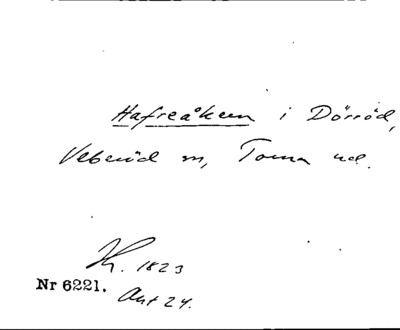 Hafreåkern i Dörröd,
Veberöd sn, Torna hd.
Kr. 1823
Nr 6221.
Akt 24.